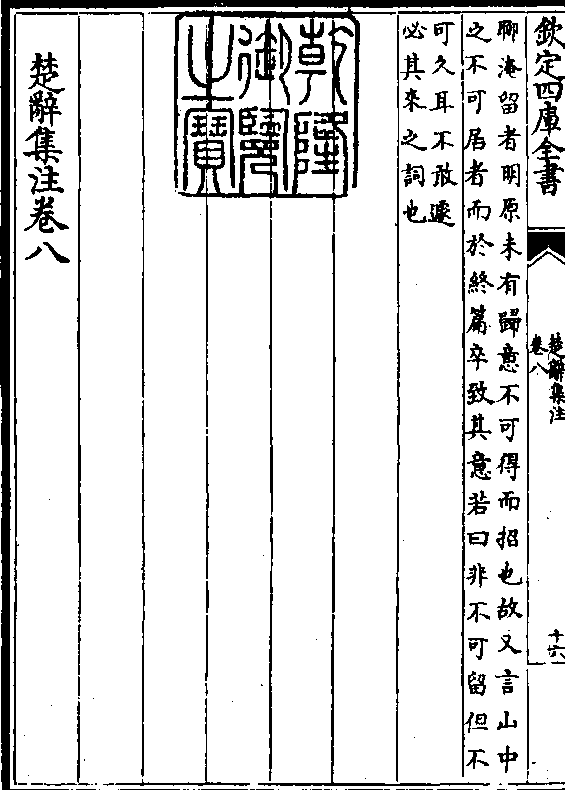 欽定四庫全書
楚辭集注
卷八
十六
聊淹留者明原未有歸意不可得而招也故又言山中
之不可居者而於終篇卒致其意若曰非不可留但不
可久耳不敢遽
必其來之詞也
乾隆
御覽
之寶
楚辭集注卷八